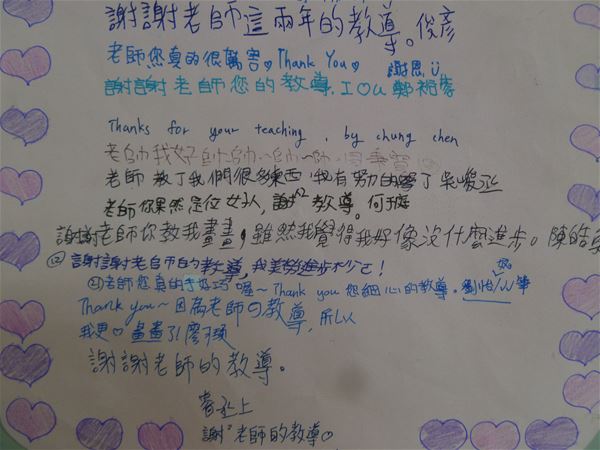 謝謝老師這兩年的教導。俊彥
老師您真的很厲害♡Thank You♡ 謝恩
謝謝老師您的教導. I♡U 鄭
Thanks for your teaching , by chung chen
老師我好
老師教了我們很多東西,我有努力的學了吳
老師你果然是位女人,謝^2教導。何
謝謝老師你教我畫畫,雖然我覺得我好像沒什麼進步。陳皓
謝謝老師的教導,我美勞進步秒!
老師您真的手好巧喔~Thank you 您細心的教導.劉怡 筆
Thank you~因為老師的教導,所以
我更♡畫畫了!廖
謝謝老師的教導。
上
謝^2老師的教導♡